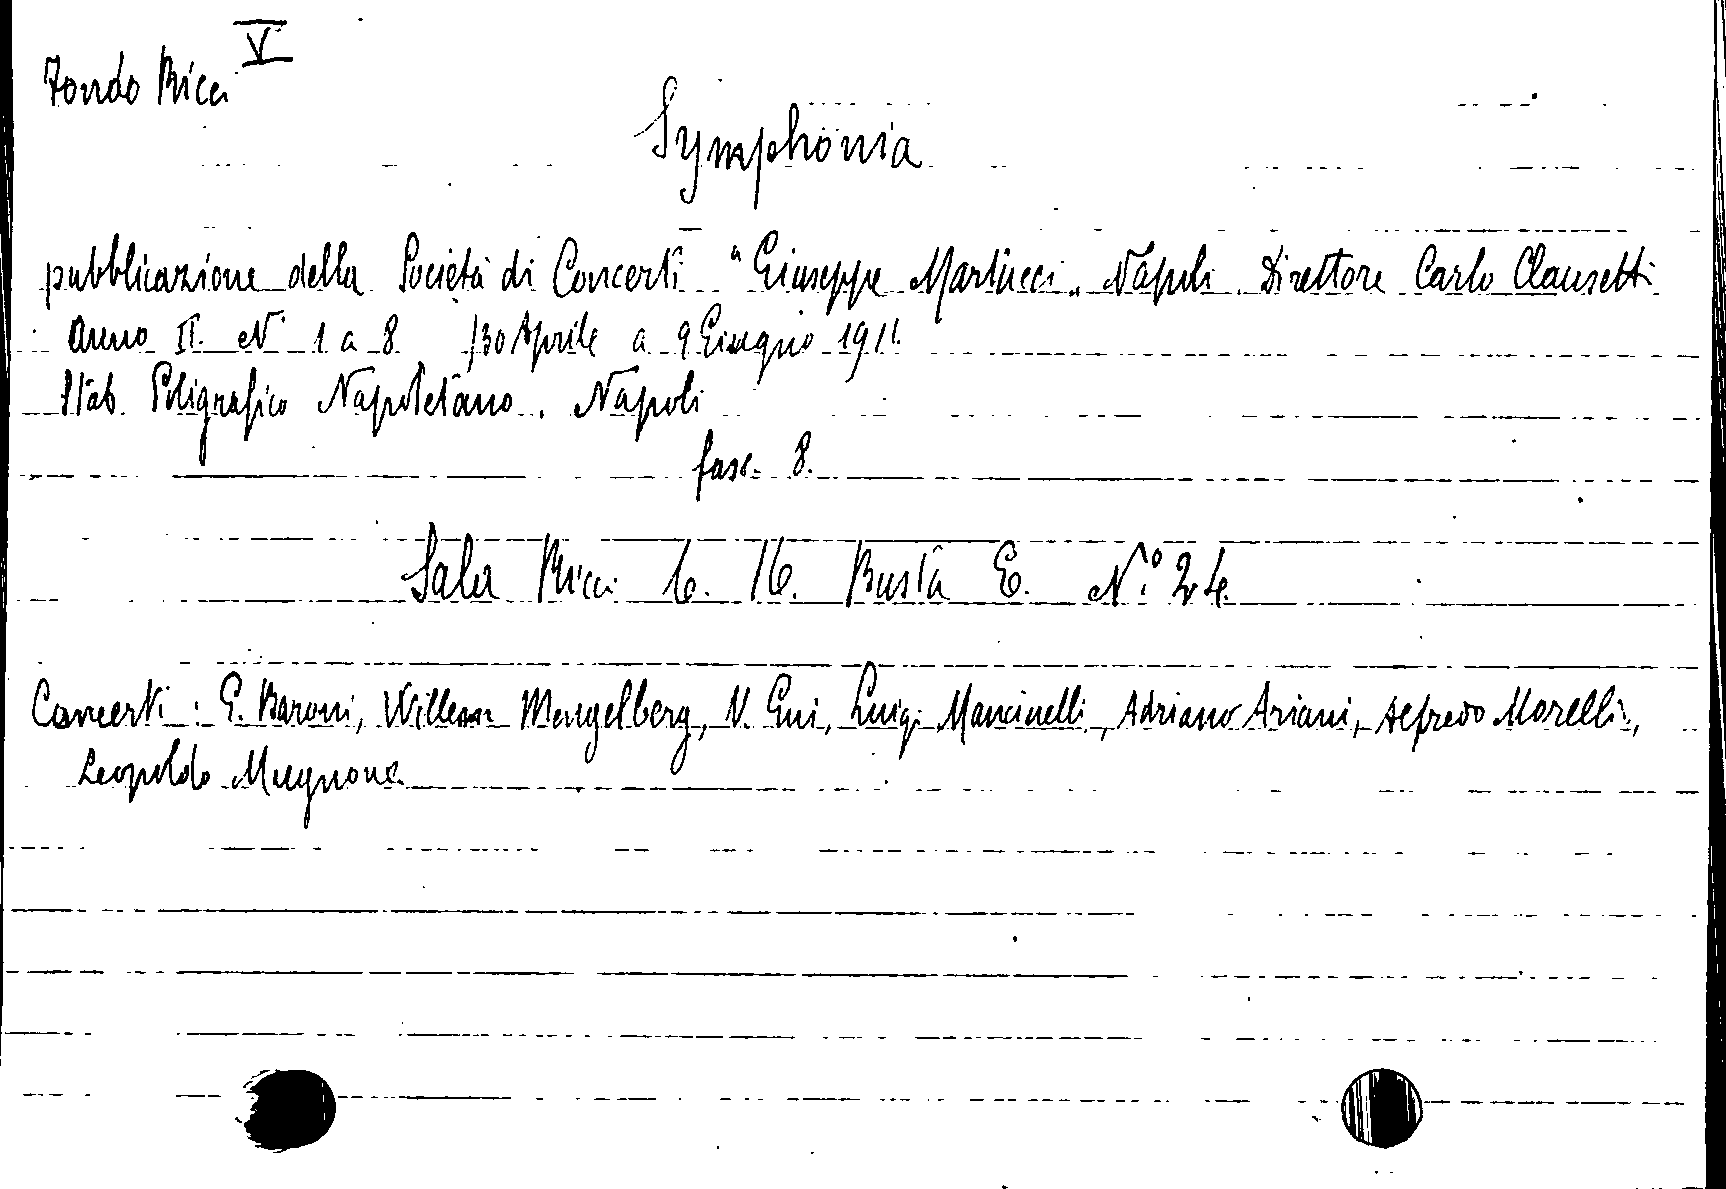 Fondo Ricci V
Symphonia
pubblicazione della Società di Concerti "Giuseppe Martucci" Napoli. Direttore Carlo Clausetti
Anno II. N° 1 a 8 /30 Aprile a 9 Giugno 1911.
Stab. Poligrafico Napoletano. Napoli
fasc. 8.
Sala Ricci 6. 16. Busta E. N.° 24.
Concerti: E. Baroni, Willem Mengelberg, V. Gui, Luigi Mancinelli, Adriano Ariani, Alfredo Morelli,
Leopoldo Mugnone